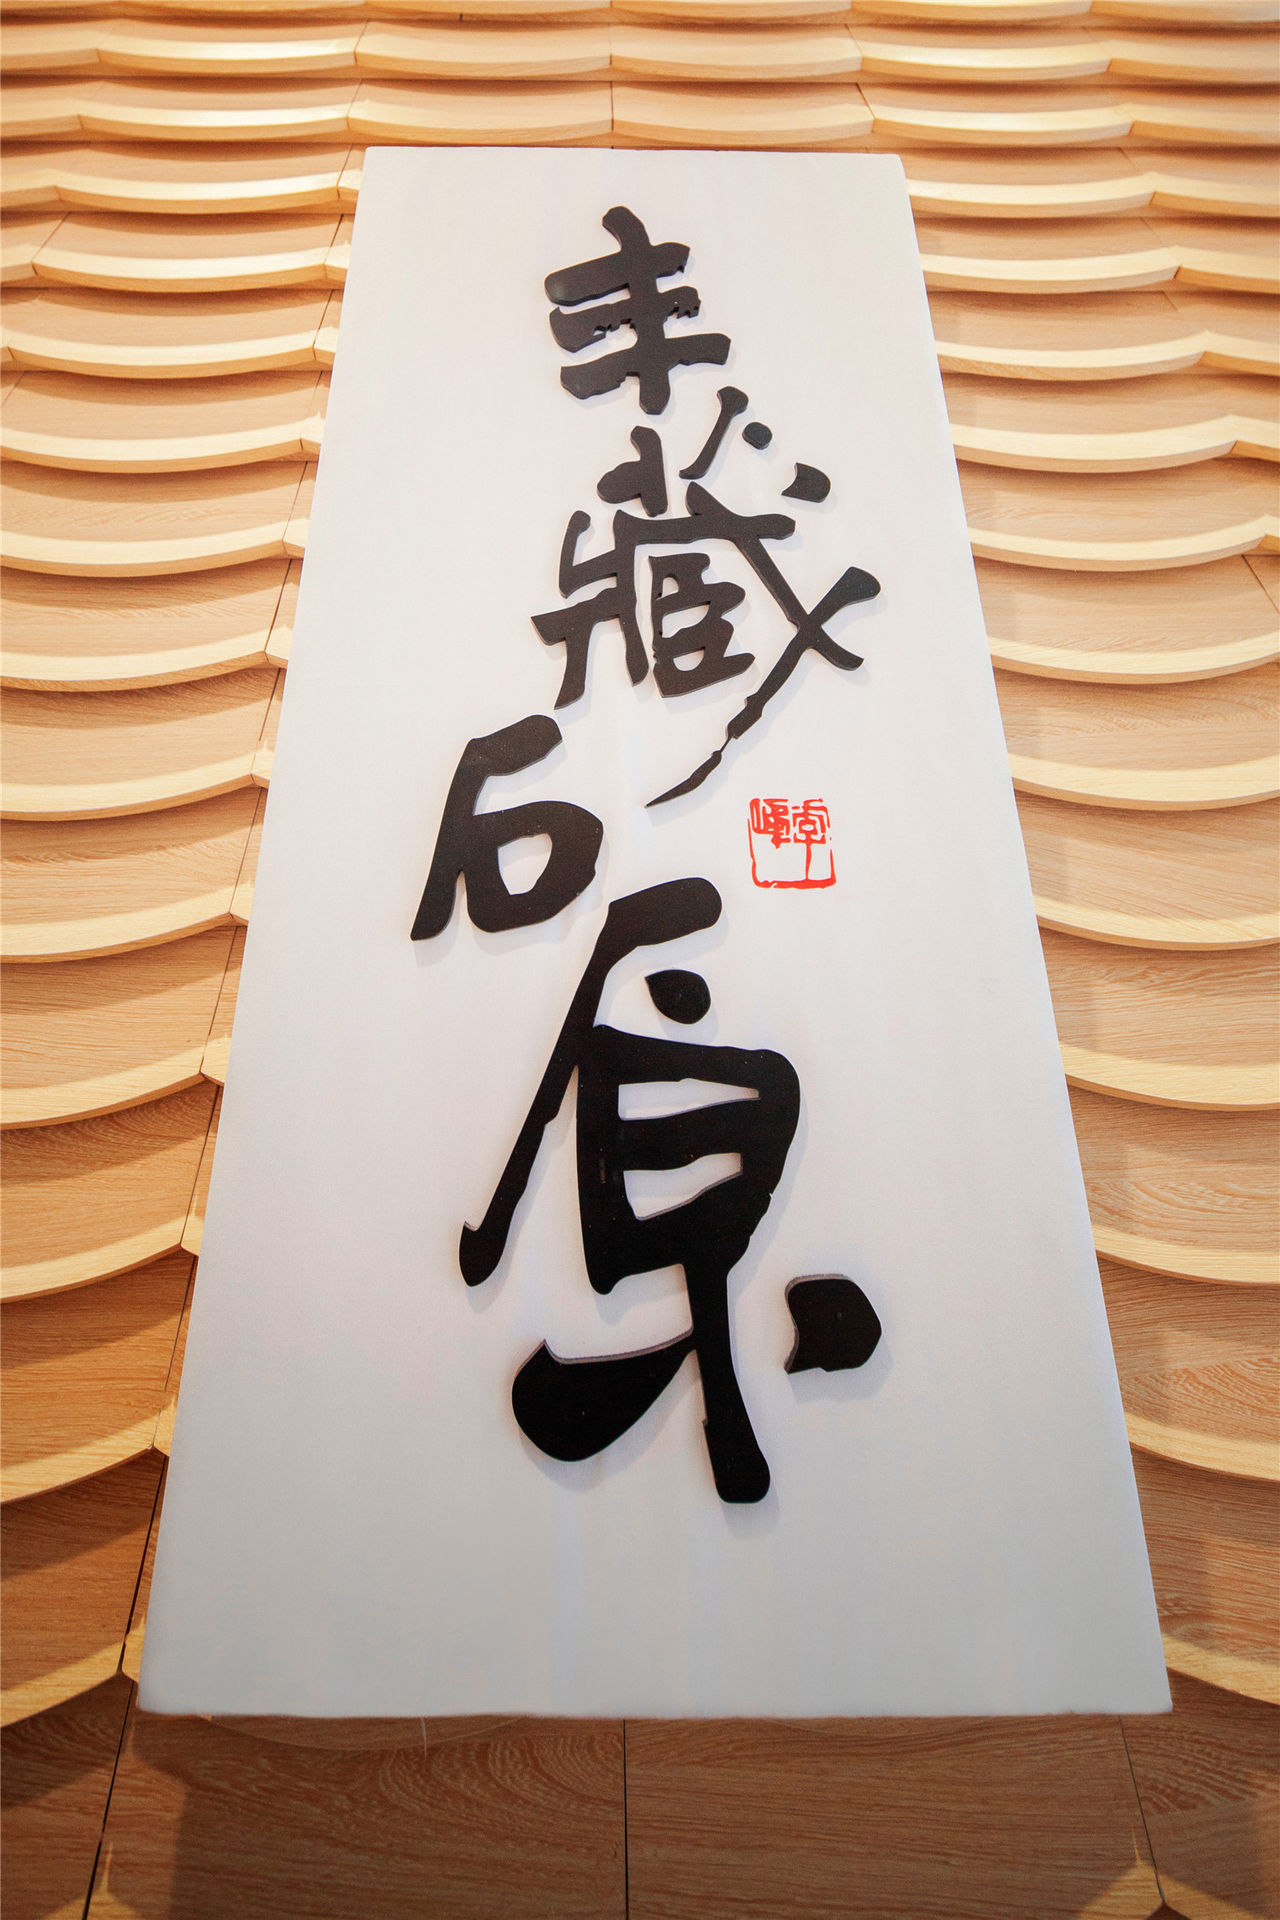 丰藏石原